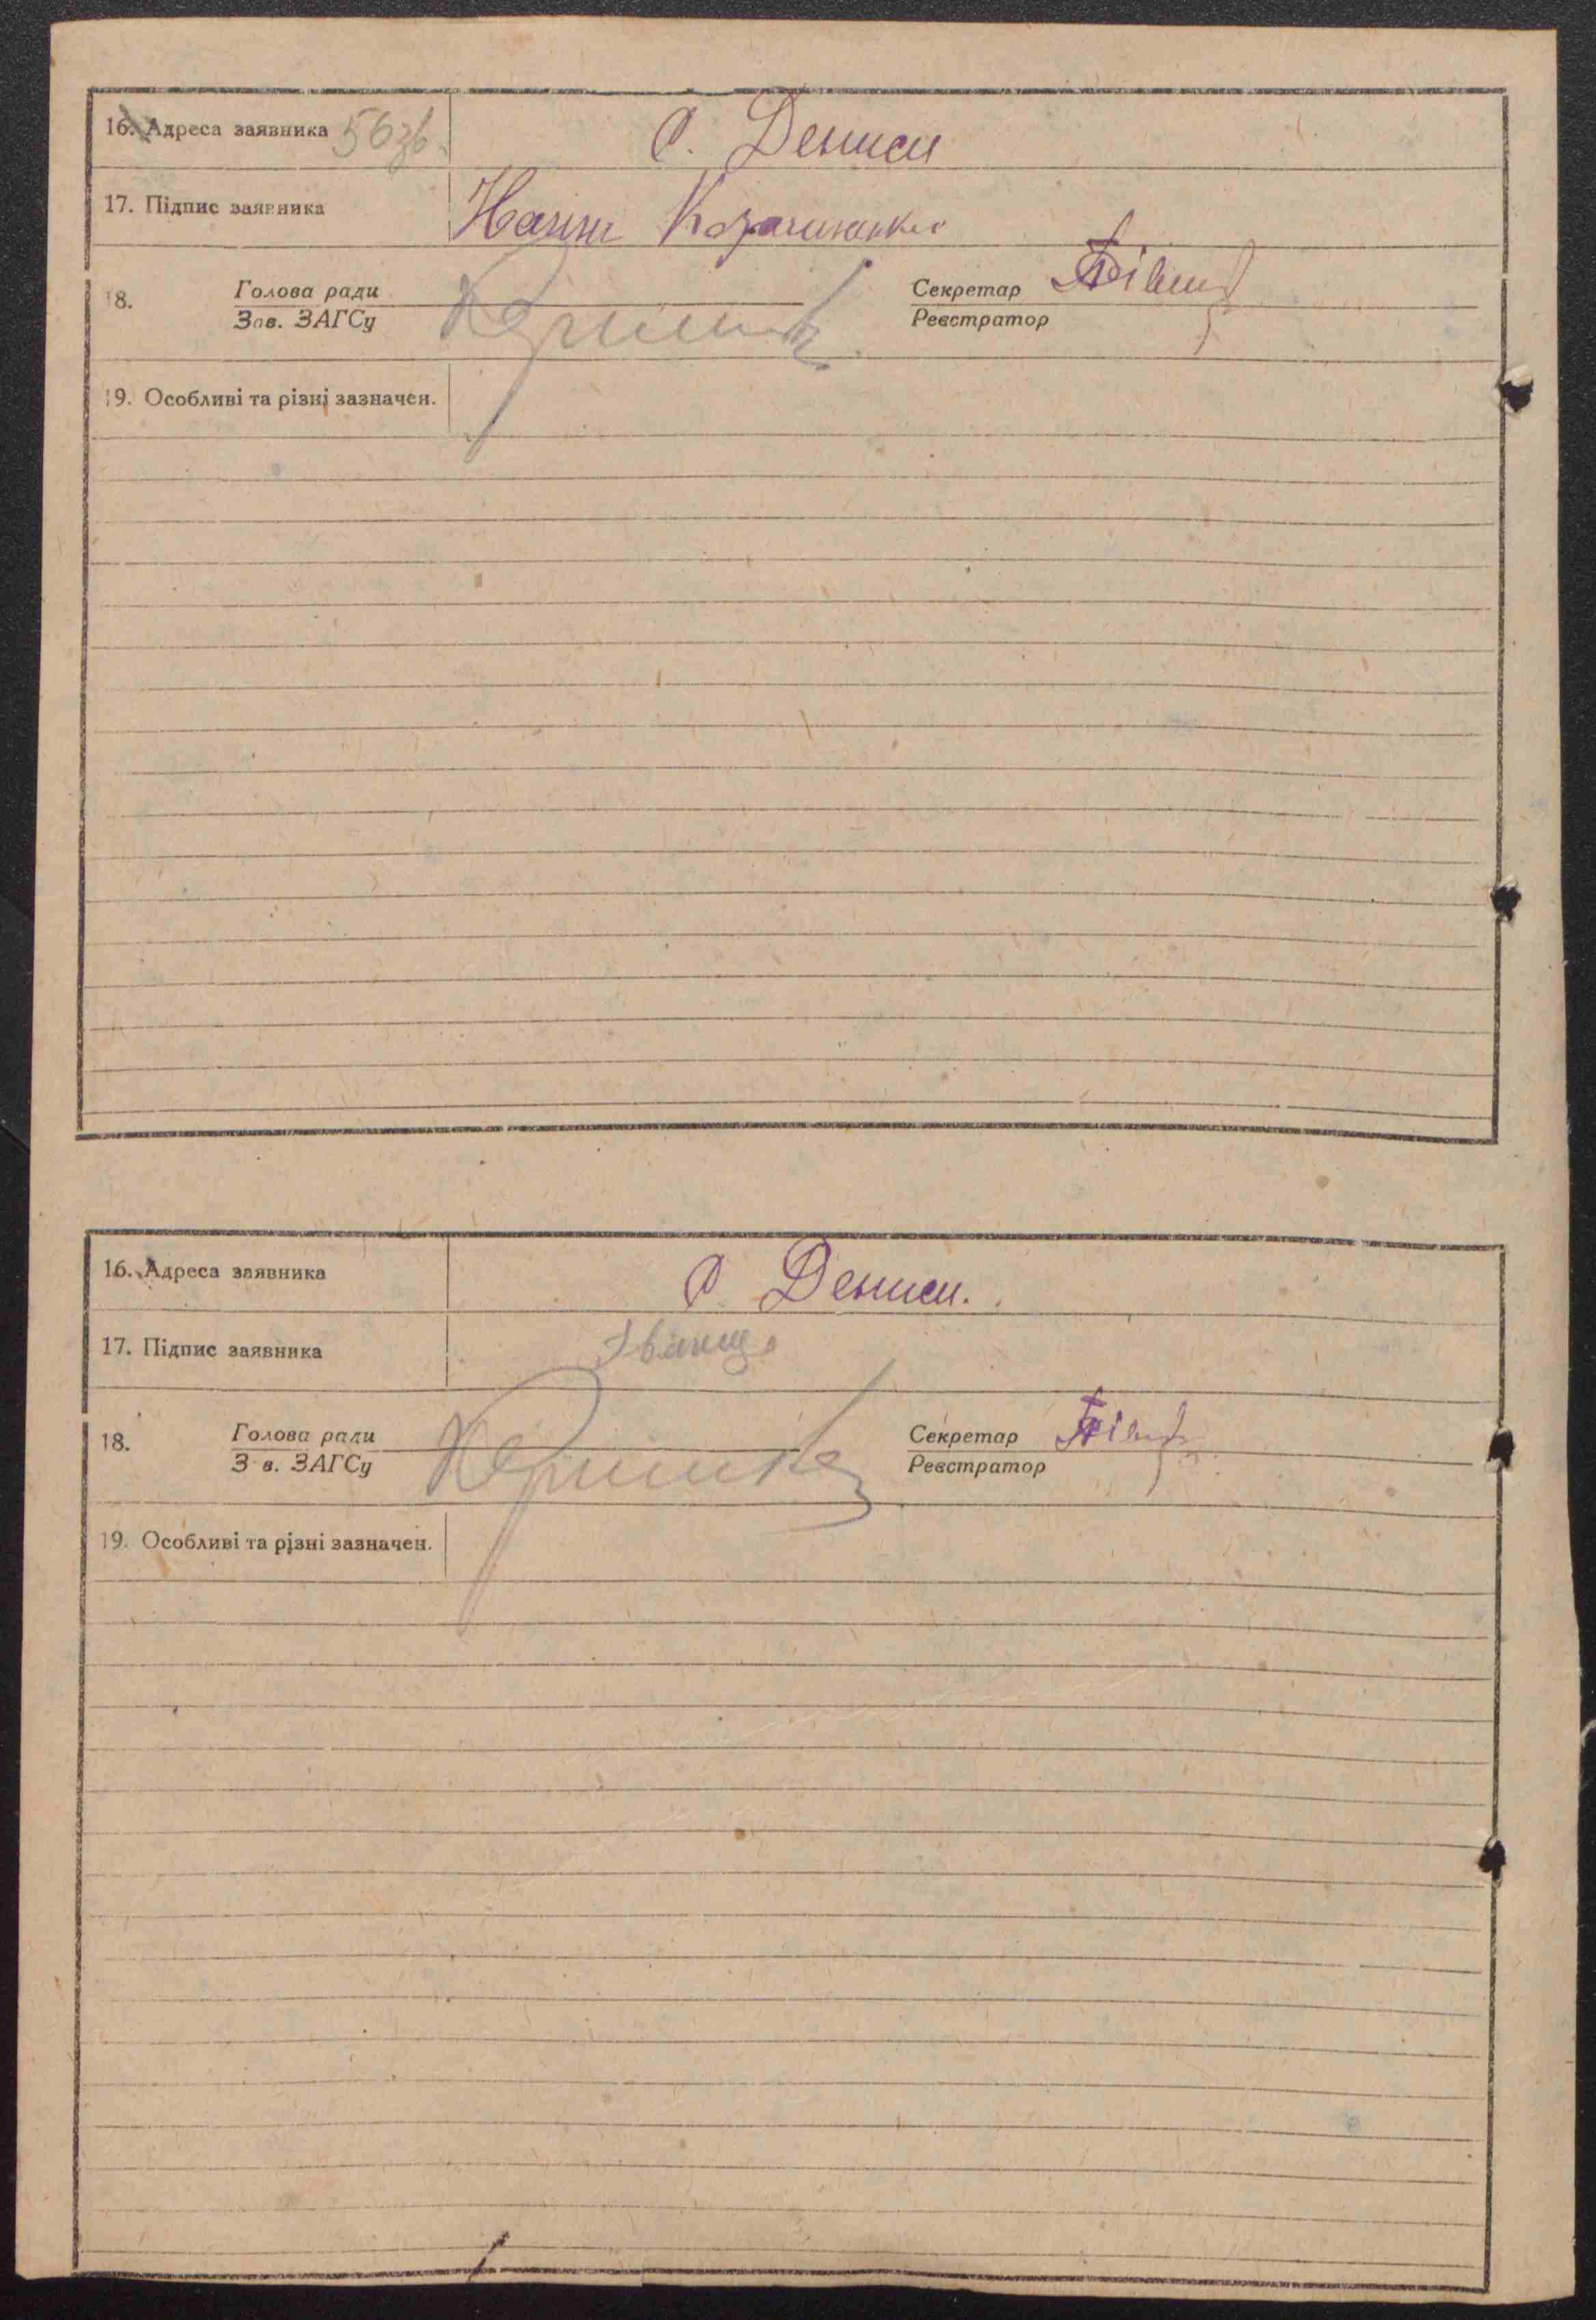 16. Адреса заявника 56 зв. С. Дениси
17. Підпис заявника Ганна
18. Голова ради Секретар
Зав. ЗАГСу Реєстратор
19. Особливі та різні зазначен.
16. Адреса заявника С. Дениси.
17. Підпис заявника
18. Голова ради Секретар
Зав. ЗАГСу Реєстратор
19. Особливі та різні зазначен.